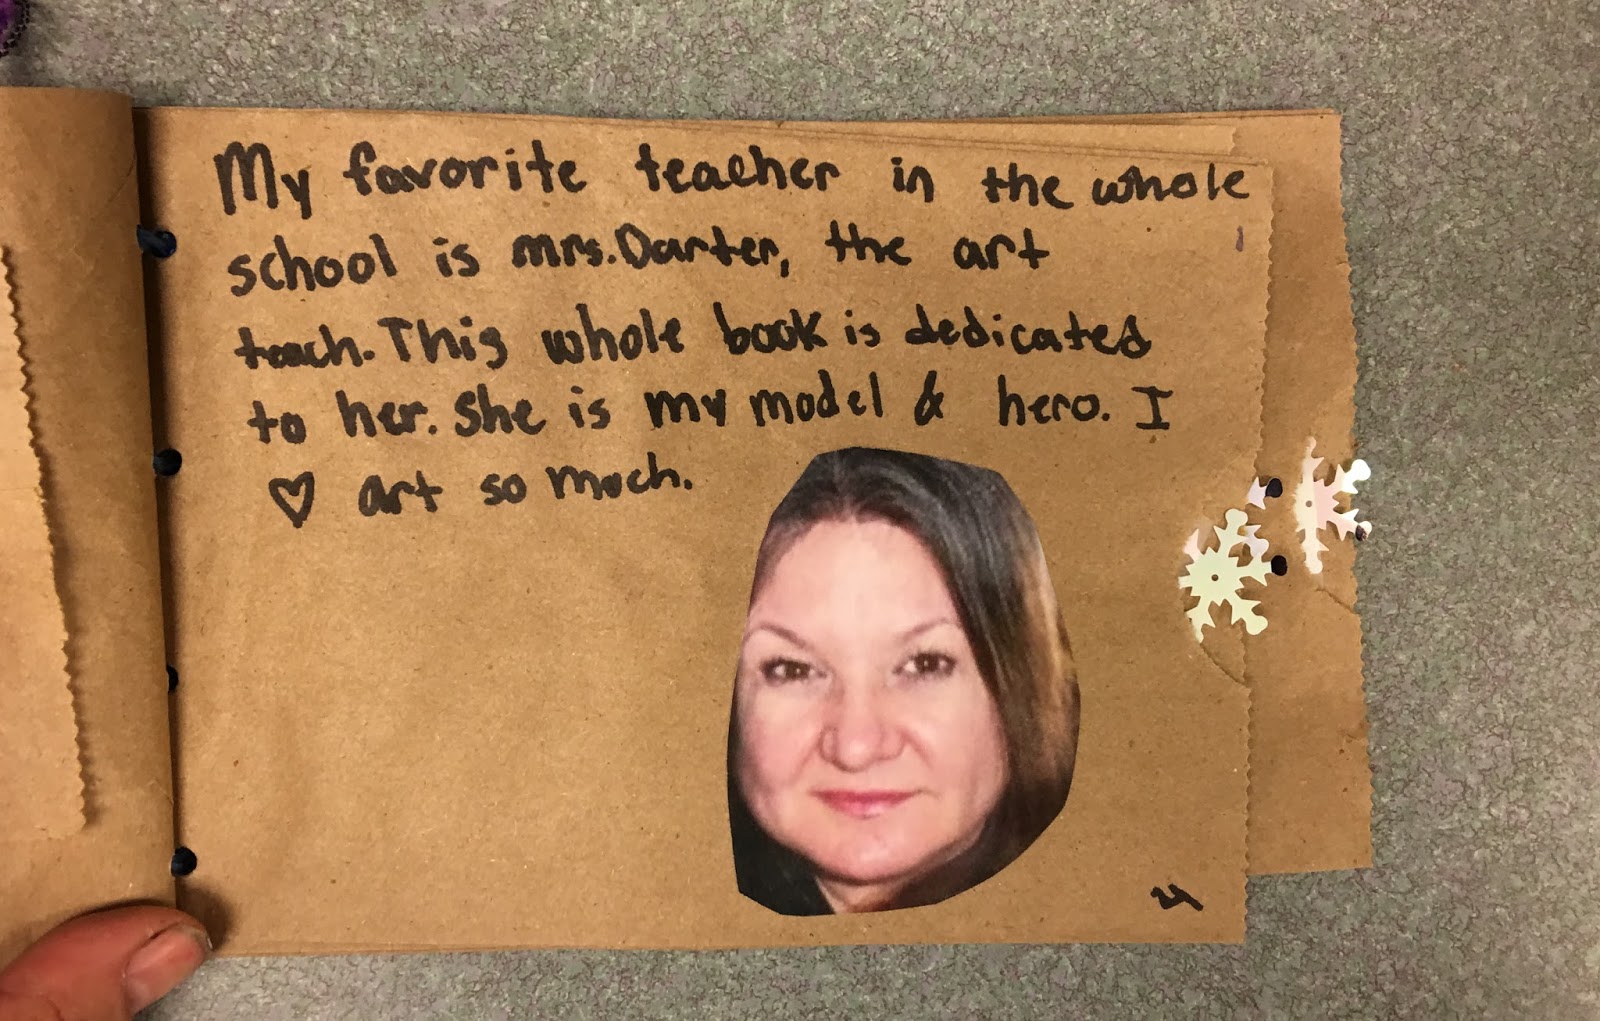 My favorite teacher in the whole
school is mrs. Darter, the art
teach. This whole book is dedicated
to her. She is my model & hero. I
♡ art so much.
4